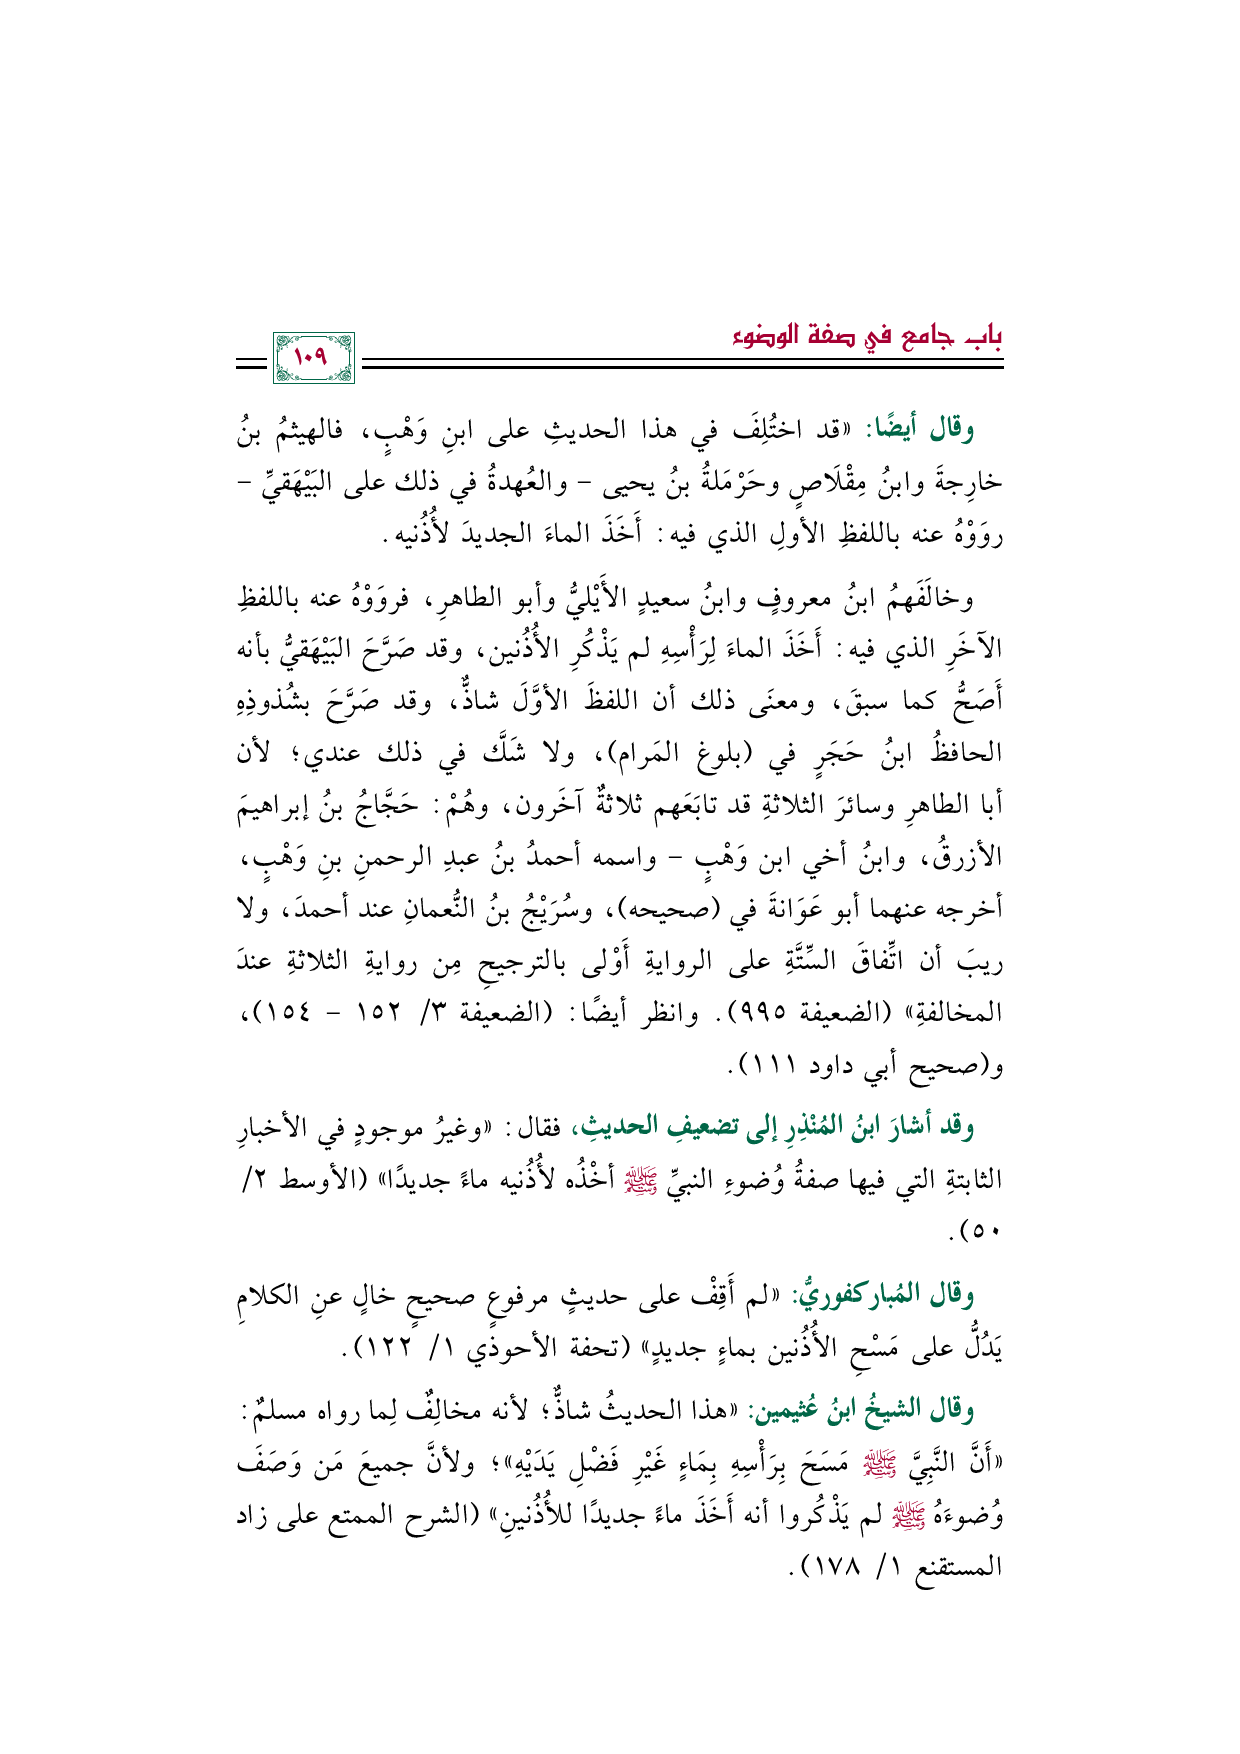 باب جامع في صفة الوضوء
١٠٩
وقال أيضًا: «قد اختُلِفَ في هذا الحديثِ على ابنِ وَهْبٍ، فالهيثمُ بنُ
خارِجةَ وابنُ مِقْلَاصٍ وحَرْمَلةُ بنُ يحيى - والعُهدةُ في ذلك على البَيْهَقيِّ -
روَوْهُ عنه باللفظِ الأولِ الذي فيه: أَخَذَ الماءَ الجديدَ لأُذُنيه.
وخالَفَهمُ ابنُ معروفٍ وابنُ سعيدٍ الأَيْليُّ وأبو الطاهرِ، فروَوْهُ عنه باللفظِ
الآخَرِ الذي فيه: أَخَذَ الماءَ لِرَأْسِهِ لم يَذْكُرِ الأُذُنين، وقد صَرَّحَ البَيْهَقيُّ بأنه
أَصَحُّ كما سبقَ، ومعنَى ذلك أن اللفظَ الأوَّلَ شاذٌّ، وقد صَرَّحَ بشُذوذِهِ
الحافظُ ابنُ حَجَرٍ في (بلوغ المَرام)، ولا شَكَّ في ذلك عندي؛ لأن
أبا الطاهرِ وسائرَ الثلاثةِ قد تابَعَهم ثلاثةٌ آخَرون، وهُمْ: حَجَّاجُ بنُ إبراهيمَ
الأزرقُ، وابنُ أخي ابن وَهْبٍ - واسمه أحمدُ بنُ عبدِ الرحمنِ بنِ وَهْبٍ،
أخرجه عنهما أبو عَوَانةَ في (صحيحه)، وسُرَيْجُ بنُ النُّعمانِ عند أحمدَ، ولا
ريبَ أن اتِّفاقَ السِّتَّةِ على الروايةِ أَوْلى بالترجيحِ مِن روايةِ الثلاثةِ عندَ
المخالفةِ» (الضعيفة ٩٩٥). وانظر أيضًا: (الضعيفة ٣/ ١٥٢ - ١٥٤)،
و(صحيح أبي داود ١١١).
وقد أشارَ ابنُ المُنْذِرِ إلى تضعيفِ الحديثِ، فقال: «وغيرُ موجودٍ في الأخبارِ
الثابتةِ التي فيها صفةُ وُضوءِ النبيِّ ﷺ أخْذُه لأُذُنيه ماءً جديدًا» (الأوسط ٢/
٥٠).
وقال المُباركفوريُّ: «لم أَقِفْ على حديثٍ مرفوعٍ صحيحٍ خالٍ عنِ الكلامِ
يَدُلُّ على مَسْحِ الأُذُنين بماءٍ جديدٍ» (تحفة الأحوذي ١/ ١٢٢).
وقال الشيخُ ابنُ عُثيمين: «هذا الحديثُ شاذٌّ؛ لأنه مخالِفٌ لِما رواه مسلمٌ:
«أَنَّ النَّبِيَّ ﷺ مَسَحَ بِرَأْسِهِ بِمَاءٍ غَيْرِ فَضْلِ يَدَيْهِ»؛ ولأنَّ جميعَ مَن وَصَفَ
وُضوءَهُ ﷺ لم يَذْكُروا أنه أَخَذَ ماءً جديدًا للأُذُنينِ» (الشرح الممتع على زاد
المستقنع ١/ ١٧٨).